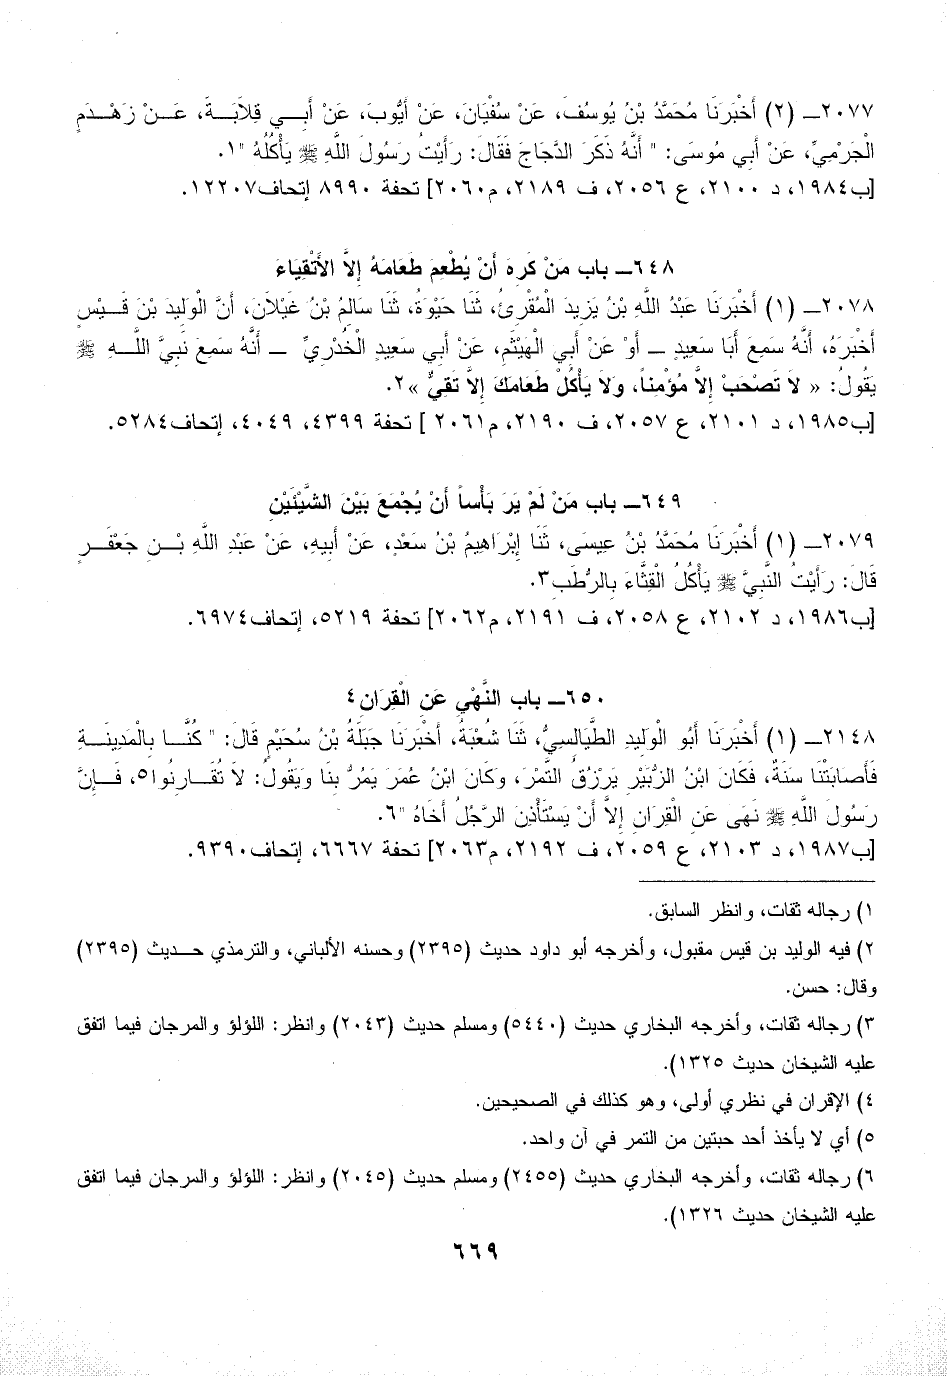 ٢٠٧٧ـ (٢) أَخْبَرَنَا مُحَمَّدُ بْنُ يُوسُفَ، عَنْ سُفْيَانَ، عَنْ أَيُّوبَ، عَنْ أَبِي قِلاَبَةَ، عَنْ زَهْدَمٍ
الْجَرْمِيِّ، عَنْ أَبِي مُوسَى: " أَنَّهُ ذَكَرَ الدَّجَاجَ فَقَالَ: رَأَيْتُ رَسُولَ اللَّهِ ﷺ يَأْكُلُهُ "١.
[ب١٩٨٤، د ٢١٠٠، ع ٢٠٥٦، ف ٢١٨٩، م٢٠٦٠] تحفة ٨٩٩٠ إتحاف١٢٢٠٧.
٦٤٨ـ باب مَنْ كَرِهَ أَنْ يُطْعِمَ طَعَامَهُ إِلاَّ الأَتْقِيَاءَ
٢٠٧٨ـ (١) أَخْبَرَنَا عَبْدُ اللَّهِ بْنُ يَزِيدَ الْمُقْرِئُ، ثَنَا حَيْوَةُ، ثَنَا سَالِمُ بْنُ غَيْلاَنَ، أَنَّ الْوَلِيدَ بْنَ قَيْسٍ
أَخْبَرَهُ، أَنَّهُ سَمِعَ أَبَا سَعِيدٍ ـ أَوْ عَنْ أَبِي الْهَيْثَمِ، عَنْ أَبِي سَعِيدٍ الْخُدْرِيِّ ـ أَنَّهُ سَمِعَ نَبِيَّ اللَّهِ ﷺ
يَقُولُ: « لاَ تَصْحَبْ إِلاَّ مُؤْمِناً، وَلاَ يَأْكُلْ طَعَامَكَ إِلاَّ تَقِيٌّ »٢.
[ب١٩٨٥، د ٢١٠١، ع ٢٠٥٧، ف ٢١٩٠، م٢٠٦١ ] تحفة ٤٣٩٩، ٤٠٤٩، إتحاف٥٢٨٤.
٦٤٩ـ باب مَنْ لَمْ يَرَ بَأْساً أَنْ يُجْمَعَ بَيْنَ الشَّيْئَيْنِ
٢٠٧٩ـ (١) أَخْبَرَنَا مُحَمَّدُ بْنُ عِيسَى، ثَنَا إِبْرَاهِيمُ بْنُ سَعْدٍ، عَنْ أَبِيهِ، عَنْ عَبْدِ اللَّهِ بْنِ جَعْفَرٍ
قَالَ: رَأَيْتُ النَّبِيَّ ﷺ يَأْكُلُ الْقِثَّاءَ بِالرُّطَبِ٣.
[ب١٩٨٦، د ٢١٠٢، ع ٢٠٥٨، ف ٢١٩١، م٢٠٦٢] تحفة ٥٢١٩، إتحاف٦٩٧٤.
٦٥٠ـ باب النَّهْيِ عَنِ الْقِرَانِ٤
٢١٤٨ـ (١) أَخْبَرَنَا أَبُو الْوَلِيدِ الطَّيَالِسِيُّ، ثَنَا شُعْبَةُ، أَخْبَرَنَا جَبَلَةُ بْنُ سُحَيْمٍ قَالَ: " كُنَّا بِالْمَدِينَةِ
فَأَصَابَتْنَا سَنَةٌ، فَكَانَ ابْنُ الزُّبَيْرِ يَرْزُقُ التَّمْرَ، وَكَانَ ابْنُ عُمَرَ يَمُرُّ بِنَا وَيَقُولُ: لاَ تُقَارِنُوا٥، فَإِنَّ
رَسُولَ اللَّهِ ﷺ نَهَى عَنِ الْقِرَانِ إِلاَّ أَنْ يَسْتَأْذِنَ الرَّجُلُ أَخَاهُ "٦.
[ب١٩٨٧، د ٢١٠٣، ع ٢٠٥٩، ف ٢١٩٢، م٢٠٦٣] تحفة ٦٦٦٧، إتحاف٩٣٩٠.
١) رجاله ثقات، وانظر السابق.
٢) فيه الوليد بن قيس مقبول، وأخرجه أبو داود حديث (٢٣٩٥) وحسنه الألباني، والترمذي حديث (٢٣٩٥)
وقال: حسن.
٣) رجاله ثقات، وأخرجه البخاري حديث (٥٤٤٠) ومسلم حديث (٢٠٤٣) وانظر: اللؤلؤ والمرجان فيما اتفق
عليه الشيخان حديث ١٣٢٥).
٤) الإقران في نظري أولى، وهو كذلك في الصحيحين.
٥) أي لا يأخذ أحد حبتين من التمر في آن واحد.
٦) رجاله ثقات، وأخرجه البخاري حديث (٢٤٥٥) ومسلم حديث (٢٠٤٥) وانظر: اللؤلؤ والمرجان فيما اتفق
عليه الشيخان حديث ١٣٢٦).
٦٦٩